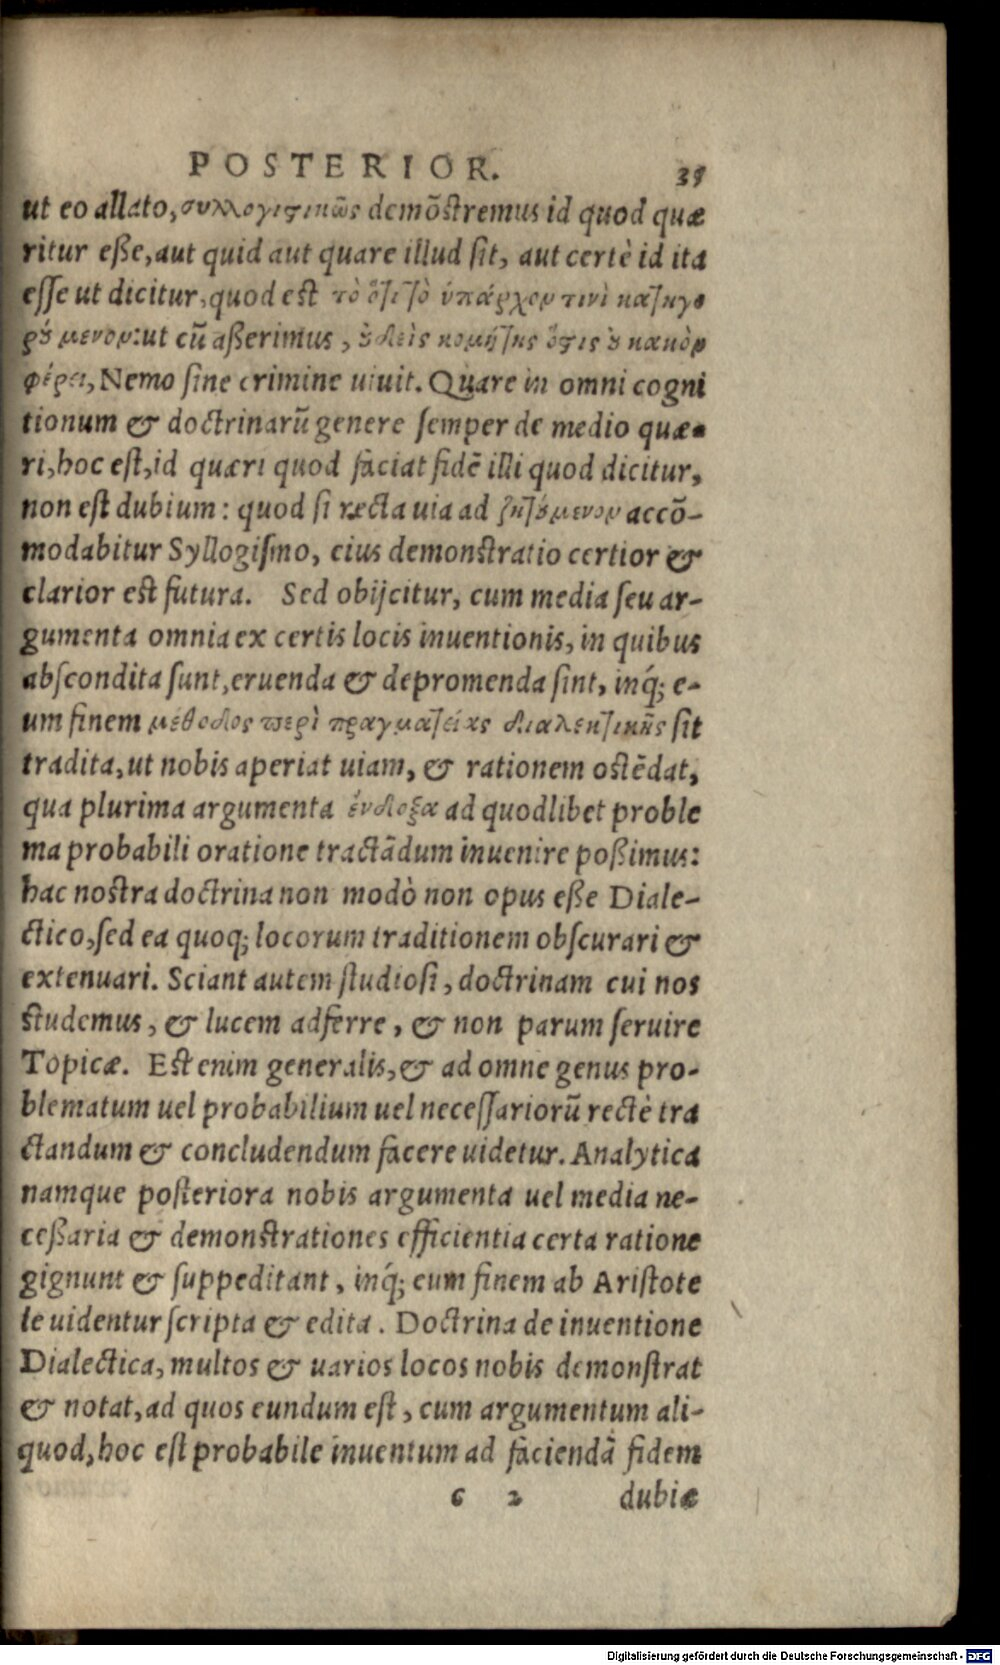 POSTERIOR. 35
ut eo allato, συλλογιστικῶς demõstremus id quod quæ
ritur eße, aut quid aut quare illud sit, aut certè id ita
esse ut dicitur, quod est τὸ ὅτι τὸ ὑπάρχον τινὶ κατηγο
ρούμενον: ut cũ aßerimus, οὐδεὶς κομήτης ὅστις οὐ κακὸν
φέρει, Nemo sine crimine uiuit. Quare in omni cogni
tionum & doctrinarũ genere semper de medio quæ-
ri, hoc est, id quæri quod faciat fidẽ illi quod dicitur,
non est dubium: quod si recta uia ad ζητούμενον accõ-
modabitur Syllogismo, eius demonstratio certior &
clarior est futura. Sed obijcitur, cum media seu ar-
gumenta omnia ex certis locis inuentionis, in quibus
abscondita sunt, eruenda & depromenda sint, inq́; e-
um finem μέθοδος περὶ πραγματείας διαλεκτικῆς sit
tradita, ut nobis aperiat uiam, & rationem ostẽdat,
qua plurima argumenta ἔνδοξα ad quodlibet proble
ma probabili oratione tractãdum inuenire poßimus:
hac nostra doctrina non modò non opus eße Diale-
ctico, sed ea quoq; locorum traditionem obscurari &
extenuari. Sciant autem studiosi, doctrinam cui nos
studemus, & lucem adferre, & non parum seruire
Topicæ. Est enim generalis, & ad omne genus pro-
blematum uel probabilium uel necessariorũ rectè tra
ctandum & concludendum facere uidetur. Analytica
namque posteriora nobis argumenta uel media ne-
ceßaria & demonstrationes efficientia certa ratione
gignunt & suppeditant, inq́; eum finem ab Aristote
le uidentur scripta & edita. Doctrina de inuentione
Dialectica, multos & uarios locos nobis demonstrat
& notat, ad quos eundum est, cum argumentum ali-
quod, hoc est probabile inuentum ad faciendã fidem
c 2 dubiæ
Digitalisierung gefördert durch die Deutsche Forschungsgemeinschaft - DFG